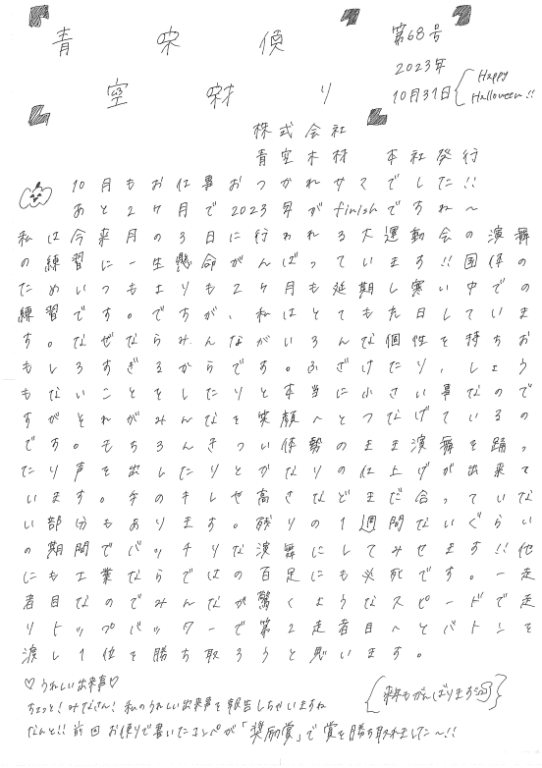 青空
便り
第68号
2023年
10月31日
Happy
Halloween!!
株式会社
青空木材 本社発行
10月もお仕事おつかれサマでした!!
あと2ヶ月で2023年がfinishですね〜
私は今来月の3日に行われる大運動会の演舞
の練習に一生懸命がんばっています!!団体の
ためいつもよりも2ヶ月も延期し寒い中での
練習です。ですが、私はとても
す。なぜならみんながいろんな個性を持ちお
もしろすぎるからです。ふざけたり、しょう
もないことをしたりと本当に小さい事なので
すがそれがみんなを笑顔へとつなげているの
です。もちろんきつい体勢のまま演舞を踊っ
たり声を出したりとかなりの仕上げが出来て
います。手のキレや高さなどまだ合っていな
い部分もあります。残りの1週間ないぐらい
の期間でバッチリな演舞にしてみせます!!他
にも工業ならではの百足にも必死です。一走
者目なのでみんなが驚くようなスピードで走
りトップバッターで第2走者目へとバトンを
渡し1位を勝ち取ろうと思います。
♡うれしい出来事♡
ちょっと!みなさん!私のうれしい出来事を報告しちゃいますね
なんと!!前回お便りで書いたコンペが「奨励賞」で賞を勝ち取れました〜!!
来年もがんばります